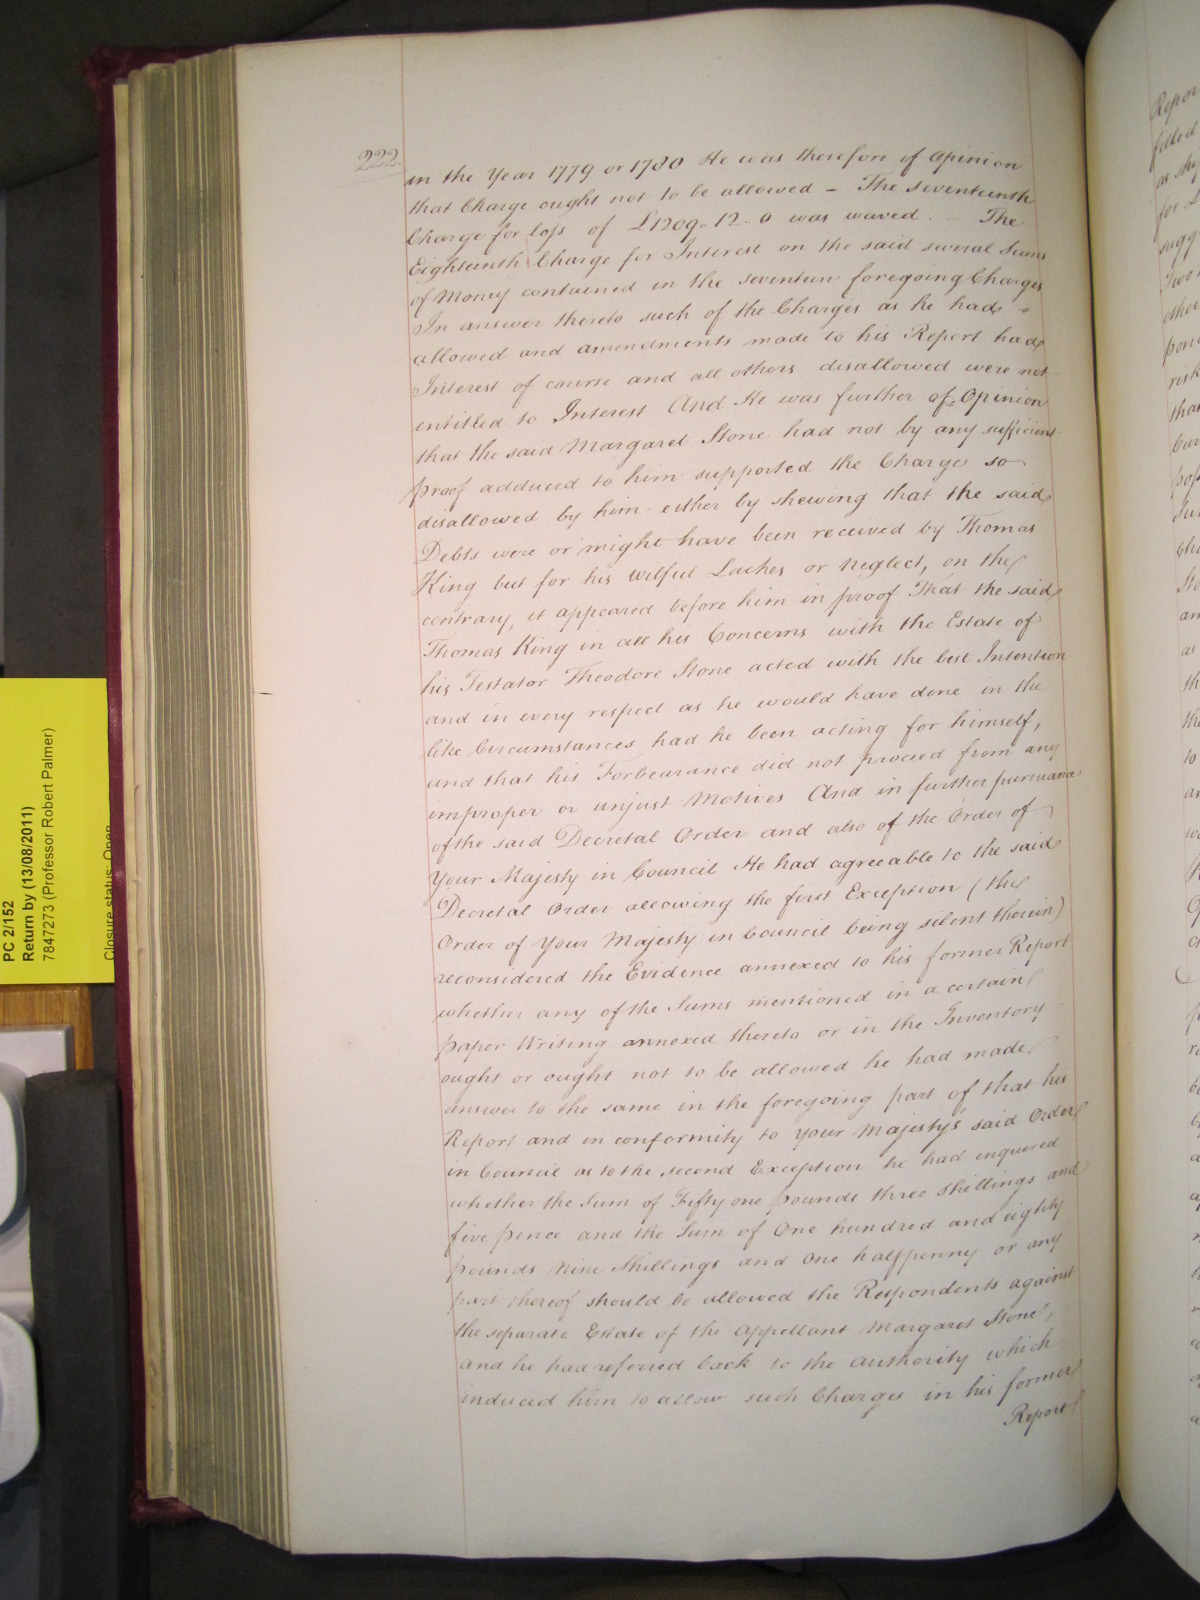 in the Year 1779 or 1780 He was therefore of Opinion
that Charge ought not to be allowed – The seventeenth
Charge for loss of £1209.. 12.. 0 was waved. – The
Eighteenth Charge for Interest on the said several Sums
of Money contained in the seventeen foregoing Charges
In answer thereto such of the Charges as he had
allowed and amendments made to his Report had
Interest of course and all others disallowed were not
entitled to Interest And He was further of Opinion
that the said Margaret Stone had not by any sufficient
proof adduced to him supported the Charges so
disallowed by him either by shewing that the said
Debts were or might have been received by Thomas
King but for his wilful Laches or neglect, on the
contrary, it appeared before him in proof That the said
Thomas King in all his Concerns with the Estate of
his Testator Theodore Stone acted with the best Intention
and in every respect as he would have done in the
like Circumstances had he been acting for himself,
and that his Forbearance did not proceed from any
improper or unjust Motives And in further pursuance
of the said Decretal Order and also of the Order of
Your Majesty in Council He had agreeable to the said
Decretal Order allowing the first Exception (the
Order of Your Majesty in Council being silent therein)
reconsidered the Evidence annexed to his former Report
whether any of the Sums mentioned in a certain
paper Writing annexed thereto or in the Inventory
ought or ought not to be allowed he had made
answer to the same in the foregoing part of that his
Report and in conformity to Your Majesty's said Order
in Council as to the second Exception he had enquired
whether the Sum of Fifty one pounds three Shillings and
five pence and the Sum of One hundred and eighty
pounds Nine Shillings and One halfpenny or any
part thereof should be allowed the Respondents against
the separate Estate of the Appellant Margaret Stone,
and he had referred back to the authority which
induced him to allow such Charges in his former
Report
PC 2/152
Return by (13/08/2011)
7847273 (Professor Robert Palmer)
Closure status: Open